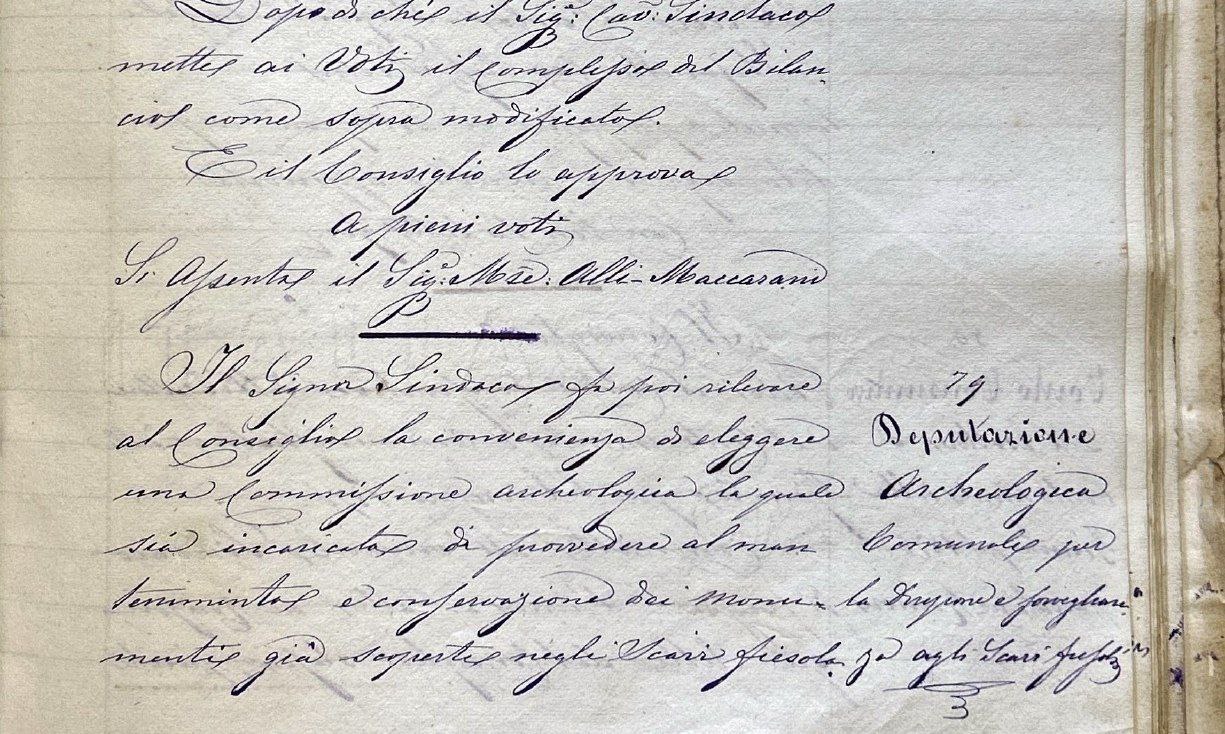 Dopo di ché il Sig.r Cav. Sindaco
mette ai Voti il complesso del Bilan-
cio come sopra modificato.
E il Consiglio lo approva
a pieni voti
Si assenta il Sig.r Mse. Alli-Maccarani
Il Signor Sindaco fa poi rilevare
al Consiglio la convenienza di eleggere
una Commissione archeologica la quale
sia incaricata di provvedere al man
tenimento e conservazione dei monu-
menti già scoperti negli Scavi fiesola-
79
Deputazione
Archeologica
Comunale per
la Direzione e sorveglian-
za agli Scavi fiesolani